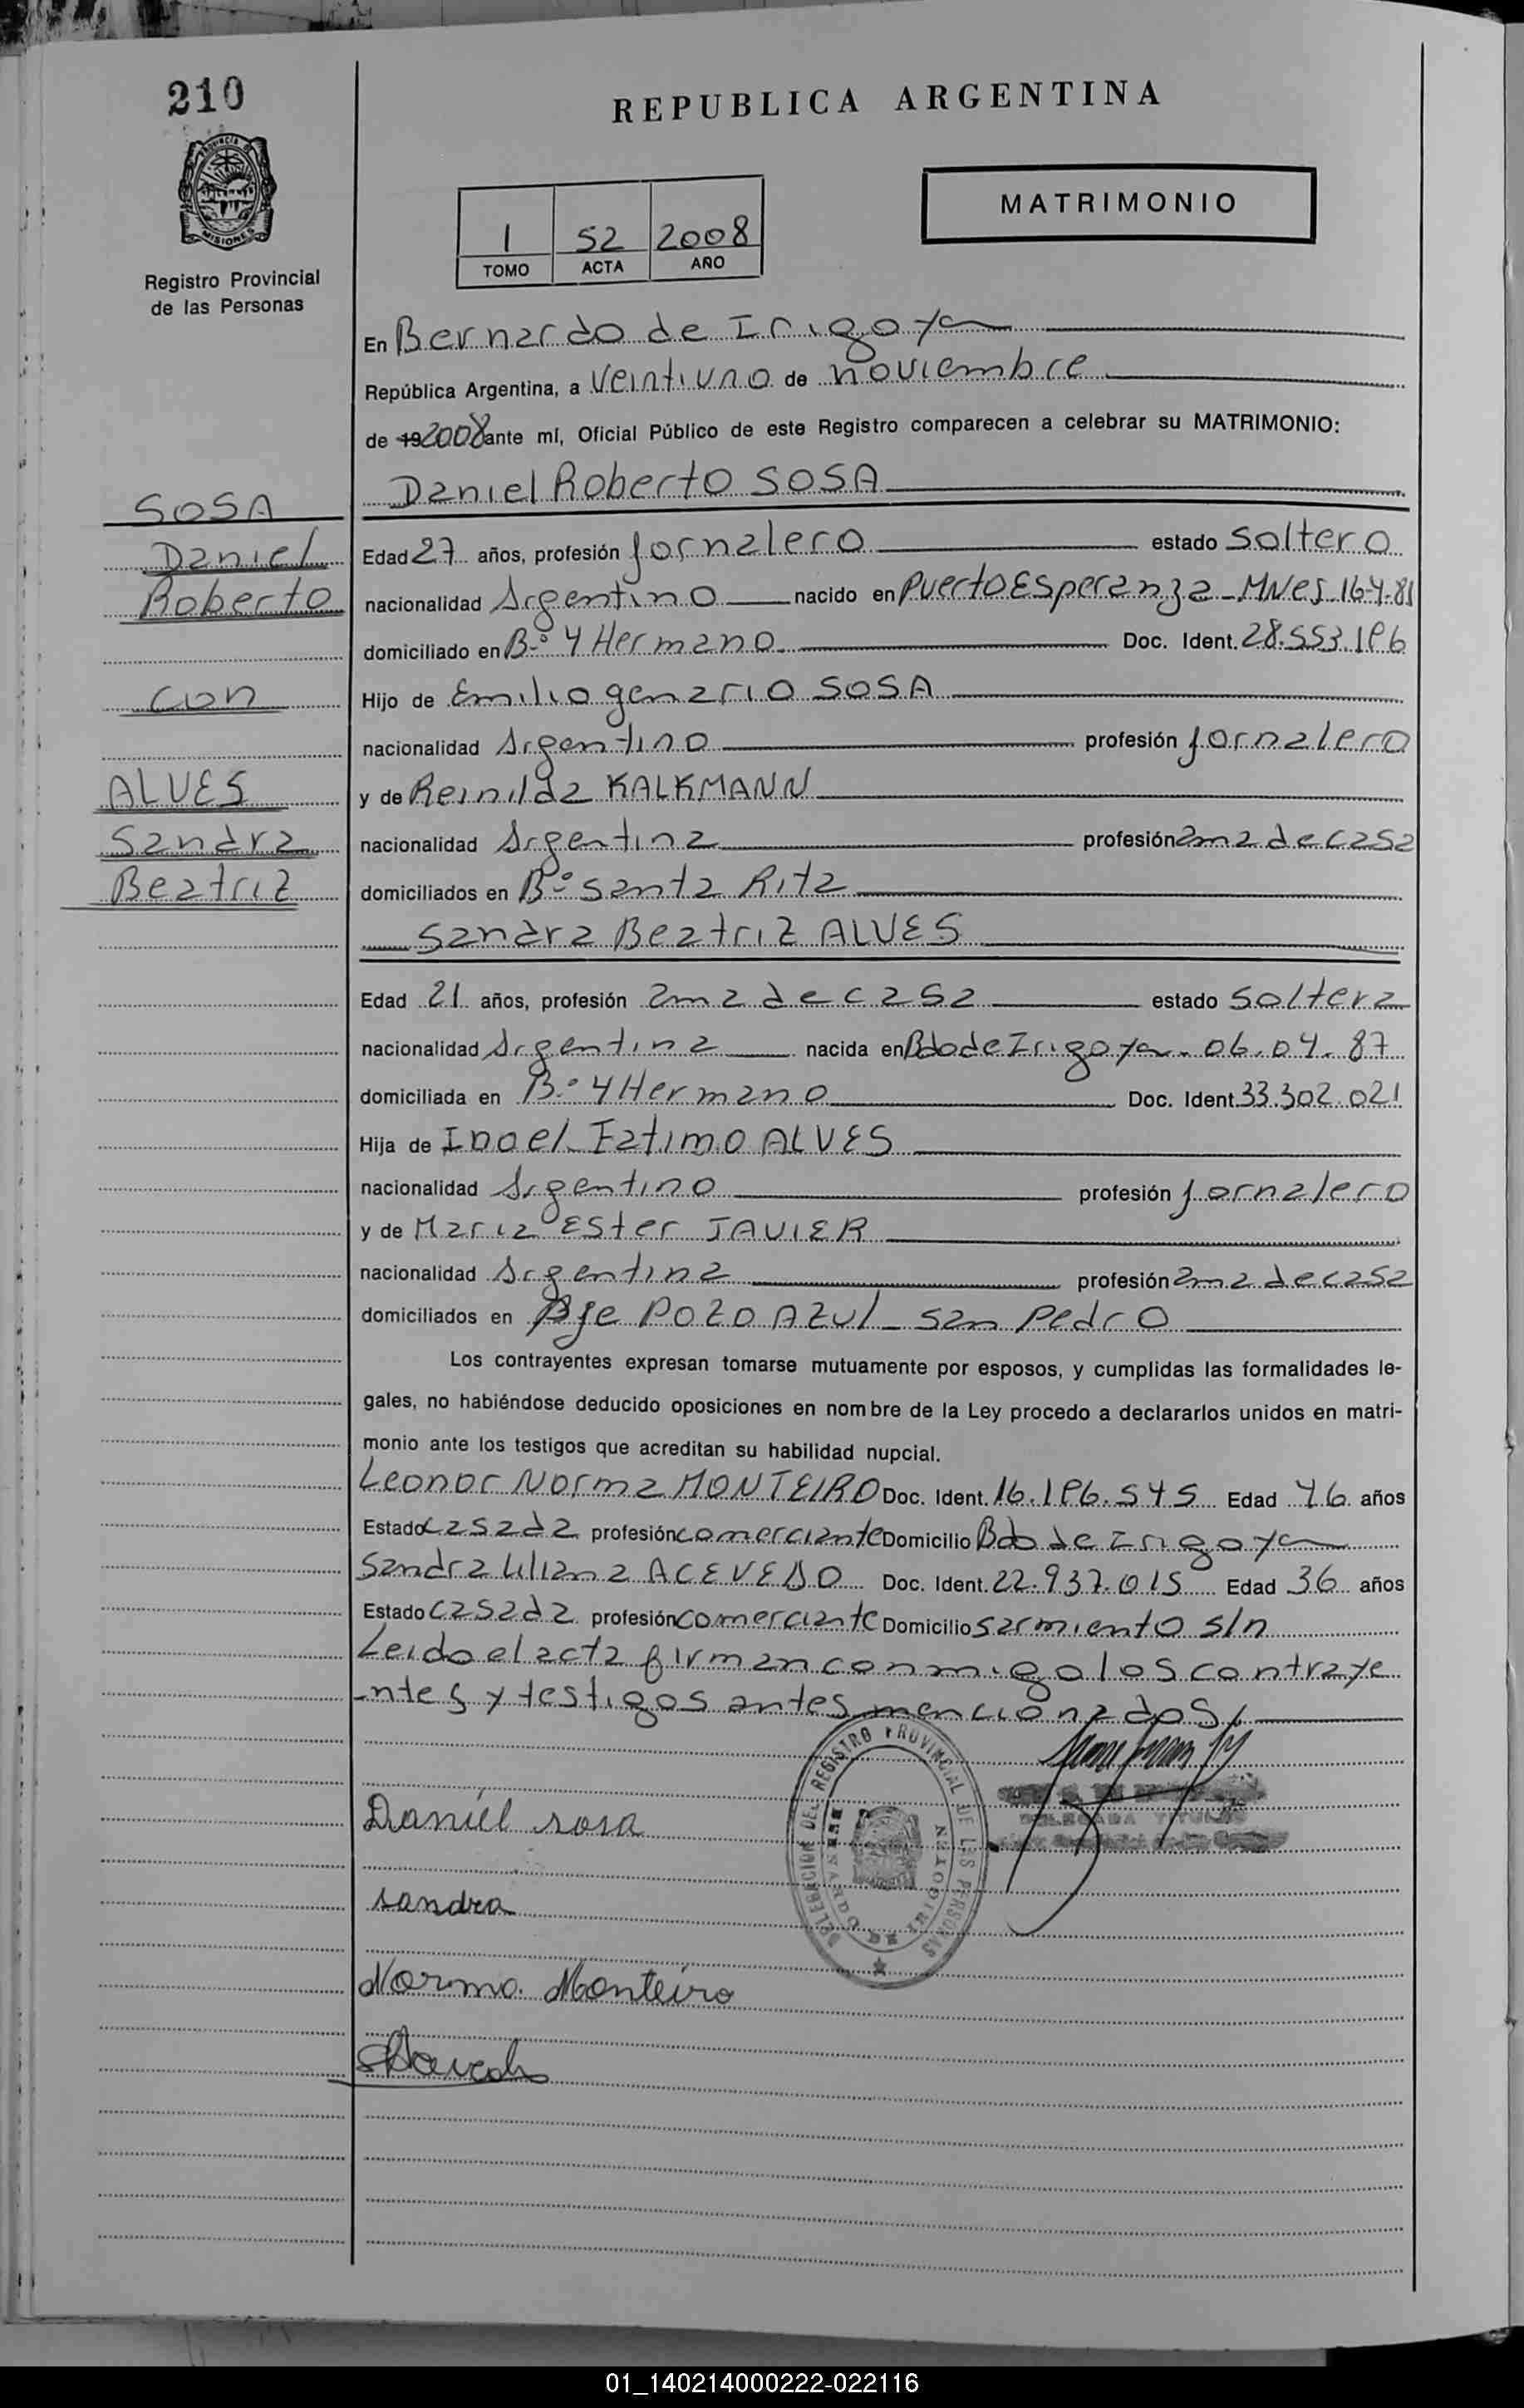 210
REPUBLICA ARGENTINA
PROVINCIA DE
MISIONES
MATRIMONIO
1 52 2008
TOMO ACTA AÑO
Registro Provincial
de las Personas
En Bernardo de Irigoyen
República Argentina, a Veintiuno de noviembre
de 19 2008 ante mí, Oficial Público de este Registro comparecen a celebrar su MATRIMONIO:
Daniel Roberto SOSA
SOSA
Daniel
Roberto
con
ALVES
Sandra
Beatriz
Edad 27 años, profesión Jornalero estado Soltero
nacionalidad Argentino nacido en Puerto Esperanza - Mnes 16-4-81
domiciliado en B.º 4 Hermano Doc. Ident. 28.553.196
Hijo de Emilio genario SOSA
nacionalidad Argentino profesión Jornalero
y de Reinilda KALKMANN
nacionalidad Argentina profesión ama de casa
domiciliados en Bº Santa Rita
Sandra Beatriz ALVES
Edad 21 años, profesión ama de casa estado Soltera
nacionalidad Argentina nacida en Bdo de Irigoyen. 06.04.87
domiciliada en B.º 4 Hermano Doc. Ident. 33.302.021
Hija de Inoel Fatimo ALVES
nacionalidad Argentino profesión Jornalero
y de Maria Ester JAVIER
nacionalidad Argentina profesión ama de casa
domiciliados en Pje POZO AZUL - San Pedro
Los contrayentes expresan tomarse mutuamente por esposos, y cumplidas las formalidades le-
gales, no habiéndose deducido oposiciones en nombre de la Ley procedo a declararlos unidos en matri-
monio ante los testigos que acreditan su habilidad nupcial.
Leonor Norma MONTEIRO Doc. Ident. 16.196.545 Edad 46 años
Estado casada profesión comerciante Domicilio Bdo de Irigoyen
Sandra Liliana ACEVEDO Doc. Ident. 22.937.015 Edad 36 años
Estado casada profesión comerciante Domicilio Sarmiento s/n
Leido el acta firman conmigo los contraye
-ntes y testigos antes mencionados
DELEGACION DEL REGISTRO PROVINCIAL DE LAS PERSONAS
BERNARDO DE IRIGOYEN
DELEGADA TITULAR
Daniel sosa
sandra
Norma Monteiro
01_140214000222-022116